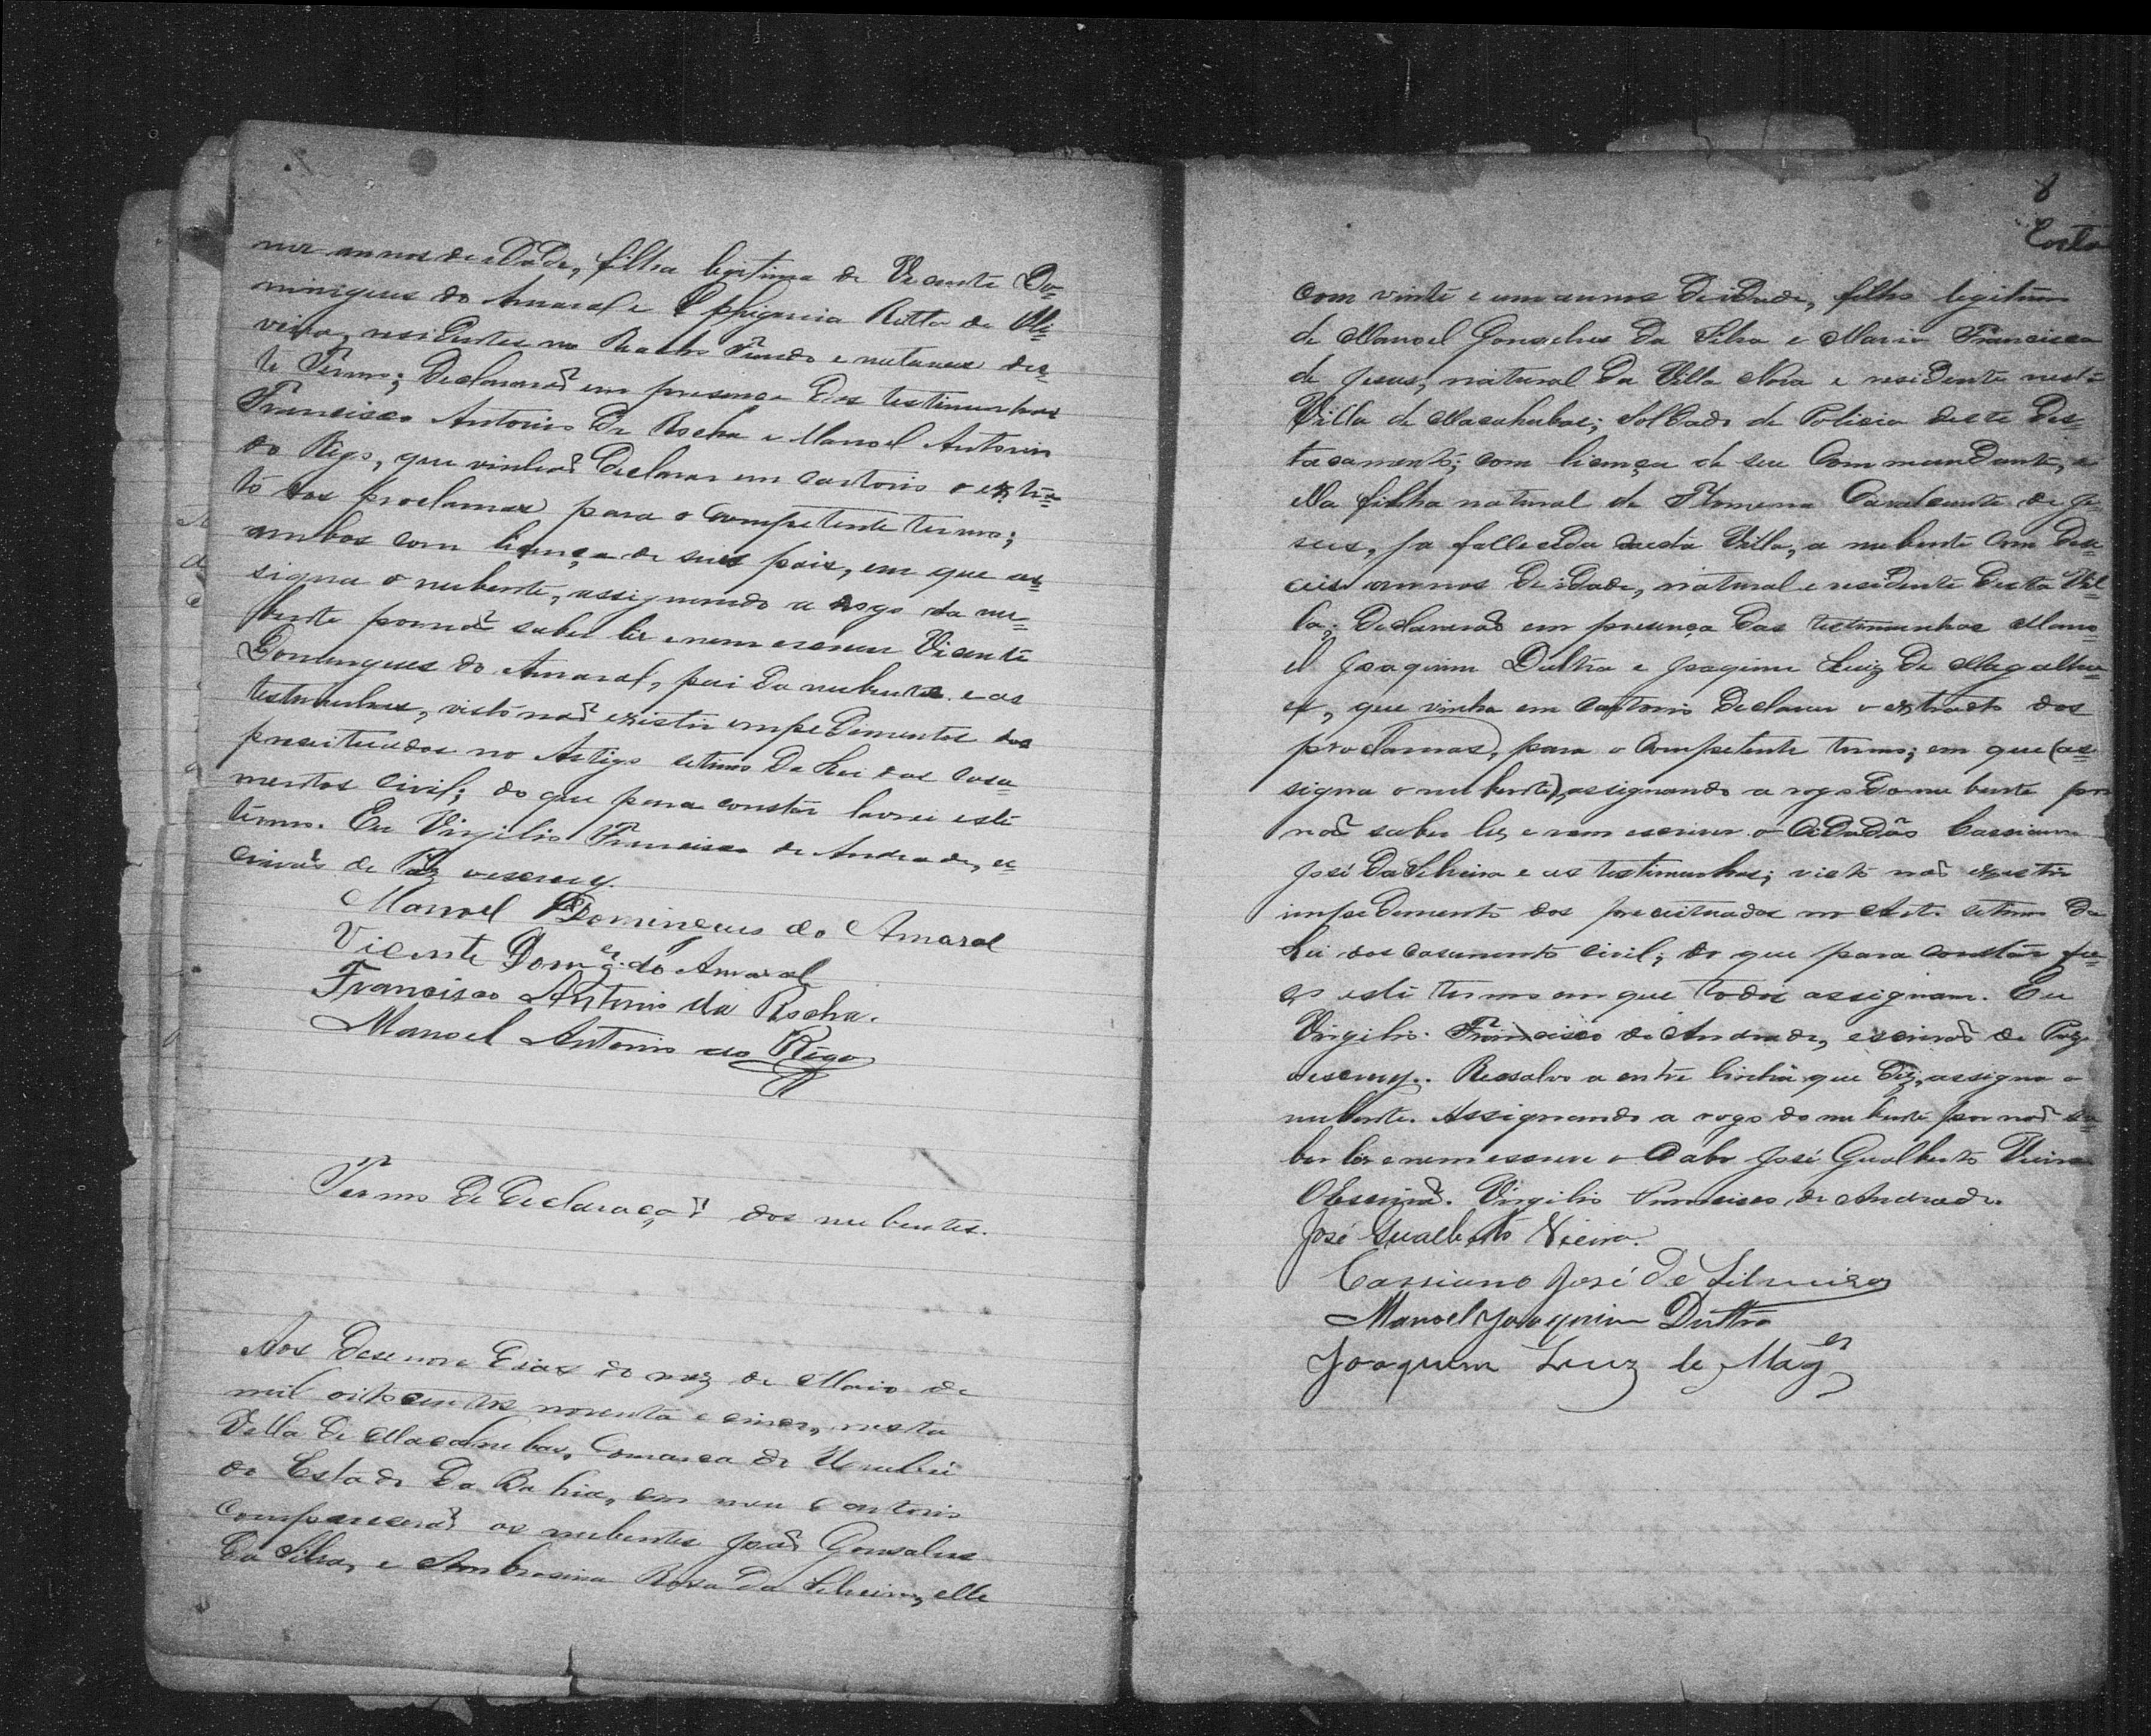 annos de idade, filha legitima de Vicente Do=
mingues do Amaral e Ephigenia Ritta de Oli=
veira, residentes no Riacho Fundo e naturaes des=
te Termo; Declararaõ em presença das testimunhas
Francisco Antonio da Rocha e Manoel Antonio
do Rego, que vinhaõ declarar em cartorio o extra=
to dos proclamas para o competente termo;
ambos com licença de seus pais, em que as=
signa o nubente, assignando a rogo da nu=
bente por naõ saber ler e nem escrever Vicente
Domingues do Amaral, pai da nubente e as
testimunhas, visto naõ existir empedimentos dos
preceituados no Artigo setimo da Lei dos casa=
mentos civil; do que para constar lavrei este
termo. Eu Virgilio Francisco de Andrade, es=
crivaõ de Paz o escrevy.
Manoel Domingues do Amaral
Vicente Doming.es do Amaral
Francisco Antonio da Rocha.
Manoel Antonio do Rego
Termo de Declaraçaõ dos nubentes.
Aos desenove dias do mez de Maio de
mil oitocentos noventa e cinco, nesta
Villa de Macahubas, Comarca de Urubú
do Estado da Bahia, em meu cartorio
compareceraõ os nubentes Joaõ Gonsalves
da Silva, e Ambrosina Rosa da Silveira, elle
8
Costa
com vinte e um annos de idade, filho legitimo
de Manoel Gonsalves da Silva e Maria Francisca
de Jesus, natural da Villa Nova e residente nesta
Villa de Macahubas; Soldado de Policia deste Des=
tacamento; com licença de seu Commandante, e
ella filha natural de Flomena Cavalcante de Je
sus, ja fallecida nesta Villa, a nubente com deze
ceis annos de idade, natural e residente desta Vil
la; Declararaõ em presença das testimunhas Mano
el Joaquim Dultra e Joaquim Luiz de Magalhã
es, que vinha em cartorio declarar o extracto dos
proclamas, para o competente termo; em que (as=
signa o nubente), assignando a rogo da nubente por
naõ saber ler e nem escriver o Cidadão Cassiano
José da Silveira e as testimunhas; visto naõ existir
impedimento dos preceituados no Art. setimo da
Lei dos casamento civil; do que para constar fi=
z este termo em que todos assignam. Eu
Virgilio Francisco de Andrade, escrivaõ de Paz
o escrevy. Resalvo a entre linha que diz, assigna o
nubente. Assignando a rogo do nubente por naõ sa=
ber ler e nem escrever o Cabo José Gualberto Vieira
O Escrivaõ. Virgilio Francisco de Andrade.
José Gualberto Vieira.
Cassiano José da Silveira
Manoel Joaquim Duttra
Joaquim Luiz de Mag.es